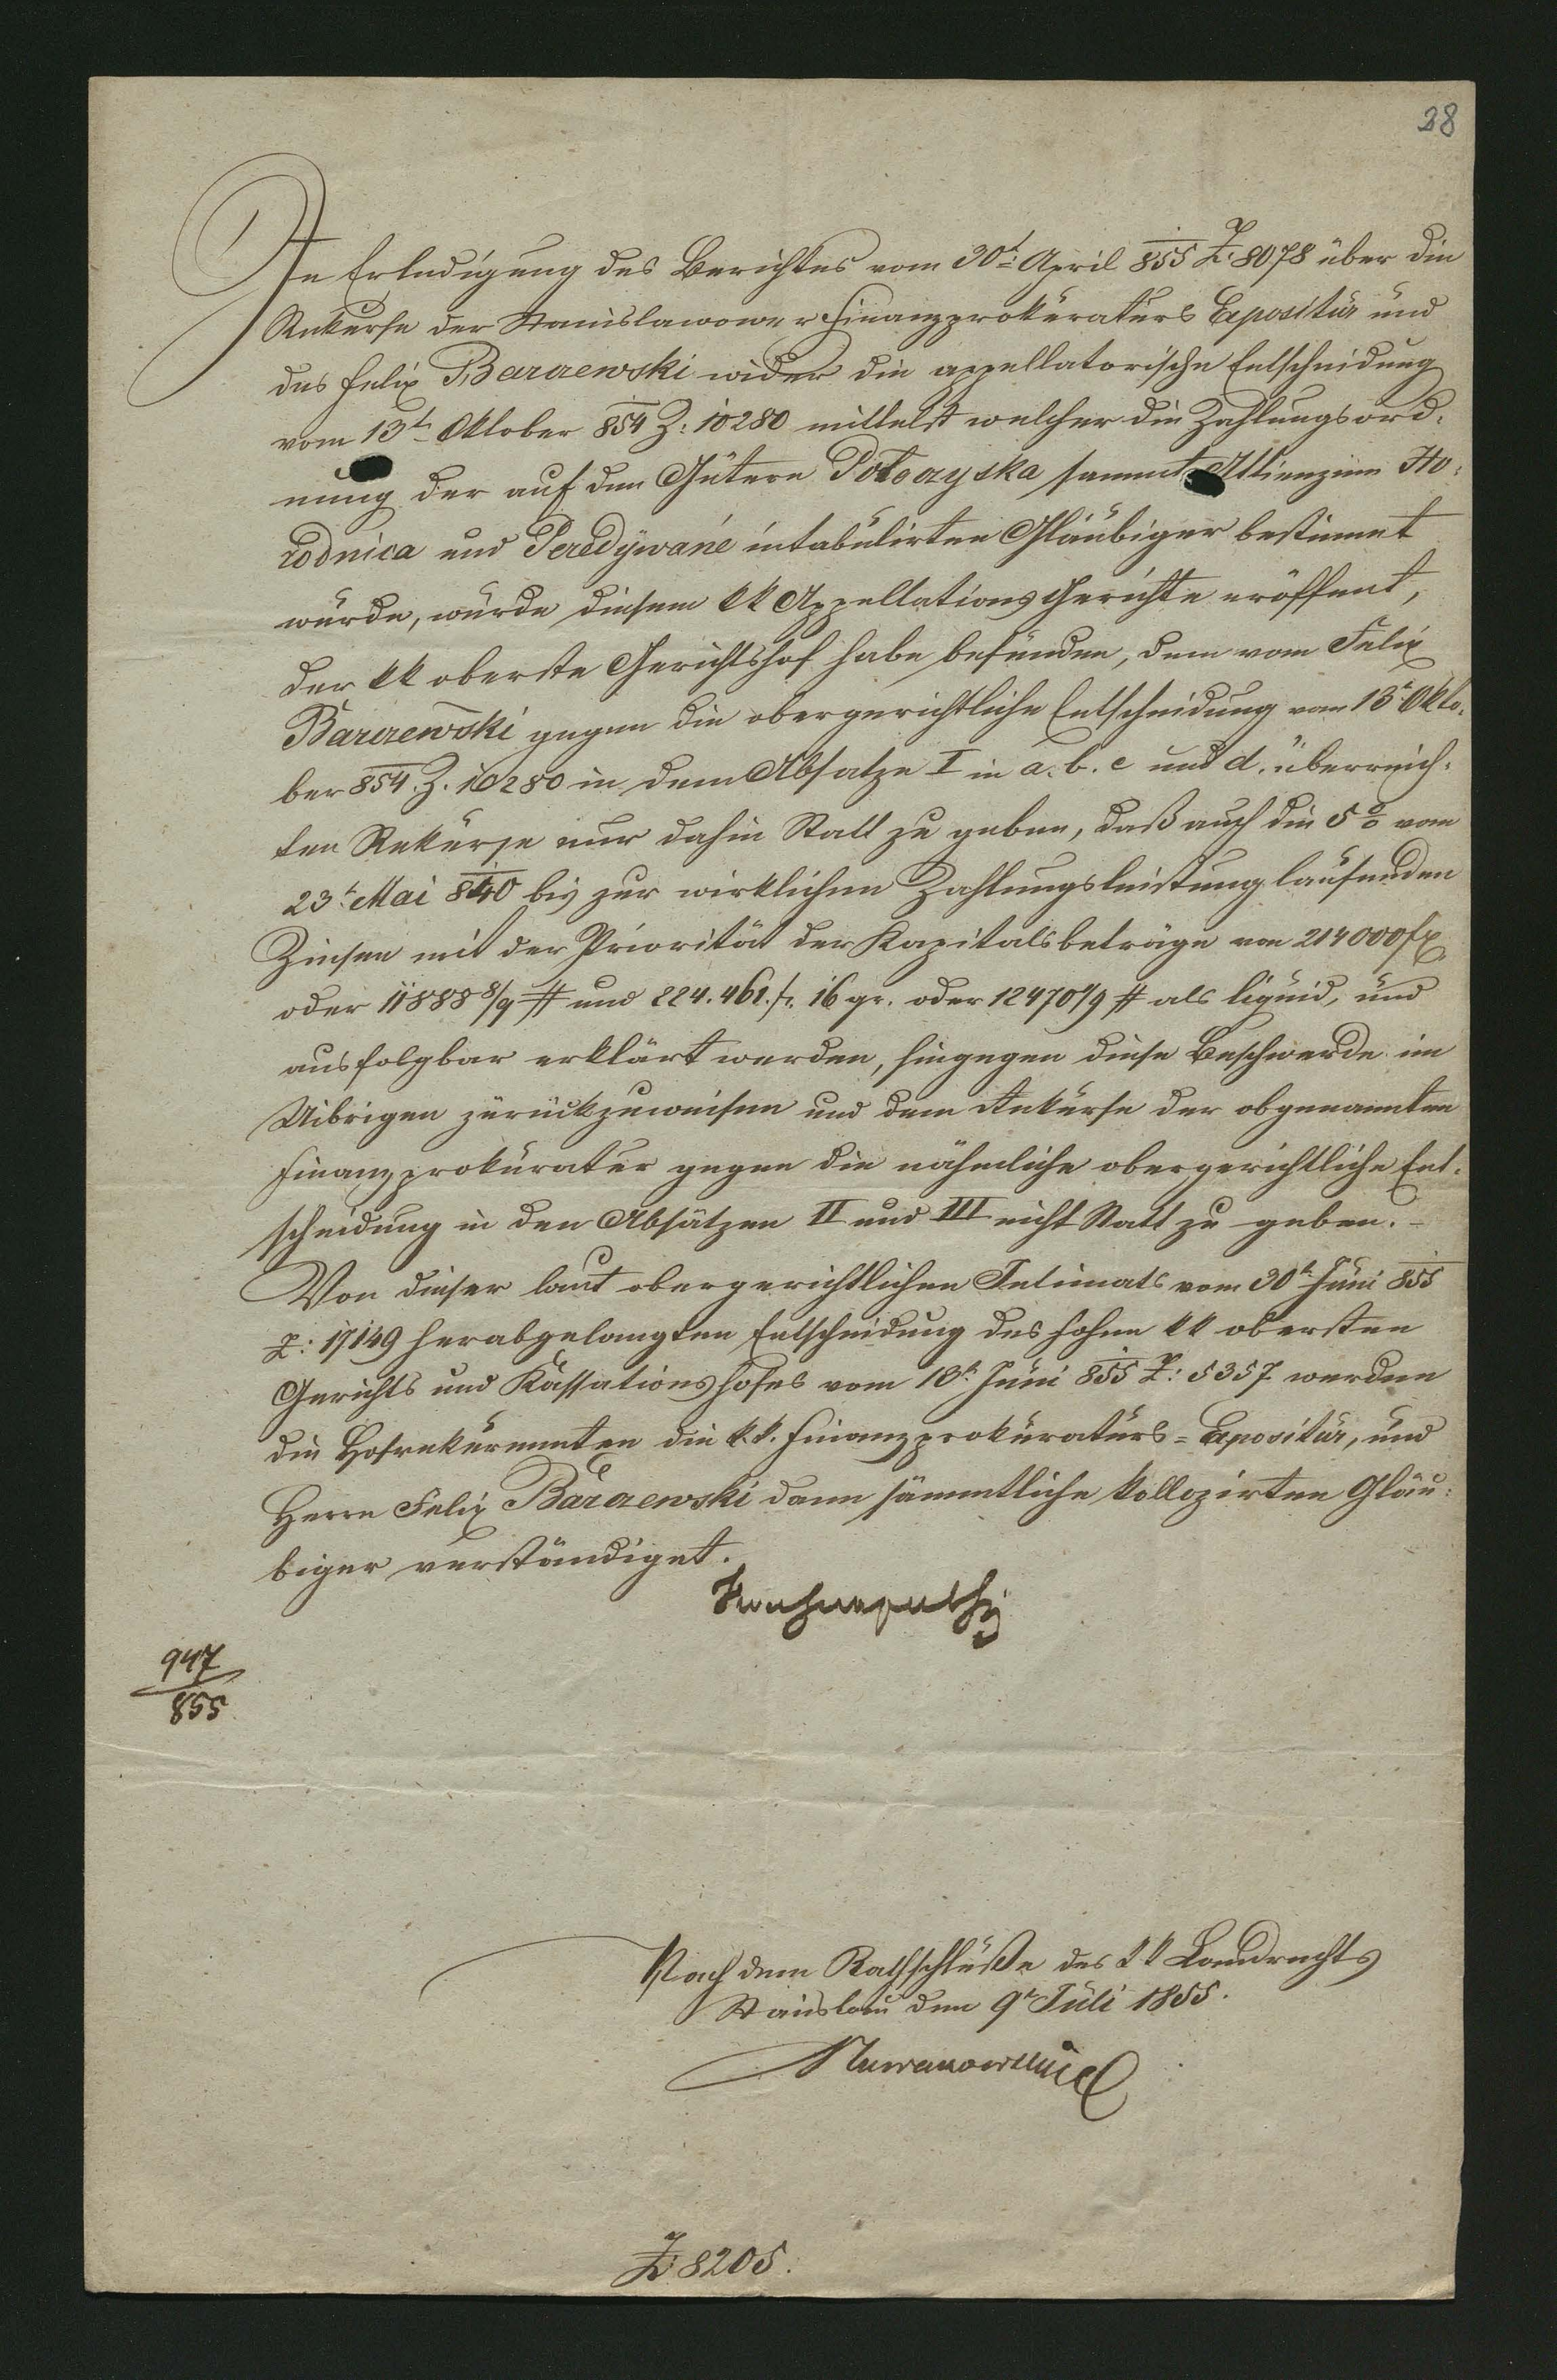 28
In Erledigung des Berichtes vom 30t: April 855 Z: 8078 über die
Rekurse der Stanislawower Finanzprokuraturs Expositur und
des Felix Barczewski wider die appellatorische Entscheidung
vom 13t Oktober 854 Z: 10280 mittelst welcher die Zahlungsord-
nung der auf den Gütern Potoczyska sammt Attinenzien Ho-
rodnica und Peredywanie intabulirten Gläubiger bestimmt
wurde, wurde diesem kk Appellations Gerichte eröffnet,
der kk oberste Gerichtshof habe befunden, dem vom Felix
Barczewski gegen die obergerichtliche Entscheidung vom 13t Okto-
ber 854. Z. 10280 in dem Absatze I in a. b. c und d. überreich-
ten Rekurse nur dahin Statt zu geben, daß auch die 5% vom
23t Mai 840 bis zur wirklichen Zahlungsleistung laufenden
Zinsen mit der Priorität der Kapitalsbeträge von 214000 fp
oder 11888 8/9 # und 224.461 f. 16 gr. oder 12470 1/9 # als liquid, und
ausfolgbar erklärt werden, hingegen diese Beschwerde im
Uibrigen zurückzuweisen und dem Rekurse der obgenannten
Finanzprokuratur gegen die nähmliche obergerichtliche Ent-
scheidung in den Absätzen II und III nicht Statt zu geben. -
Von dieser laut obergerichtlichen Intimats vom 30t Juni 855
Z: 17149 herabgelangten Entscheidung des hohen kk obersten
Gerichts und Kassationshofes vom 13t Juni 855 Z: 5357 werden
die Hofrekurenten die k.k. Finanzprokuraturs=Expositur, und
Herrn Felix Barczewski dann sämmtliche kollozirten Gläu-
biger verständiget.
947
855
Nach dem Rathschluße des kk Landrechts
Stanislau den 9t Juli 1855.
Z: 8205.